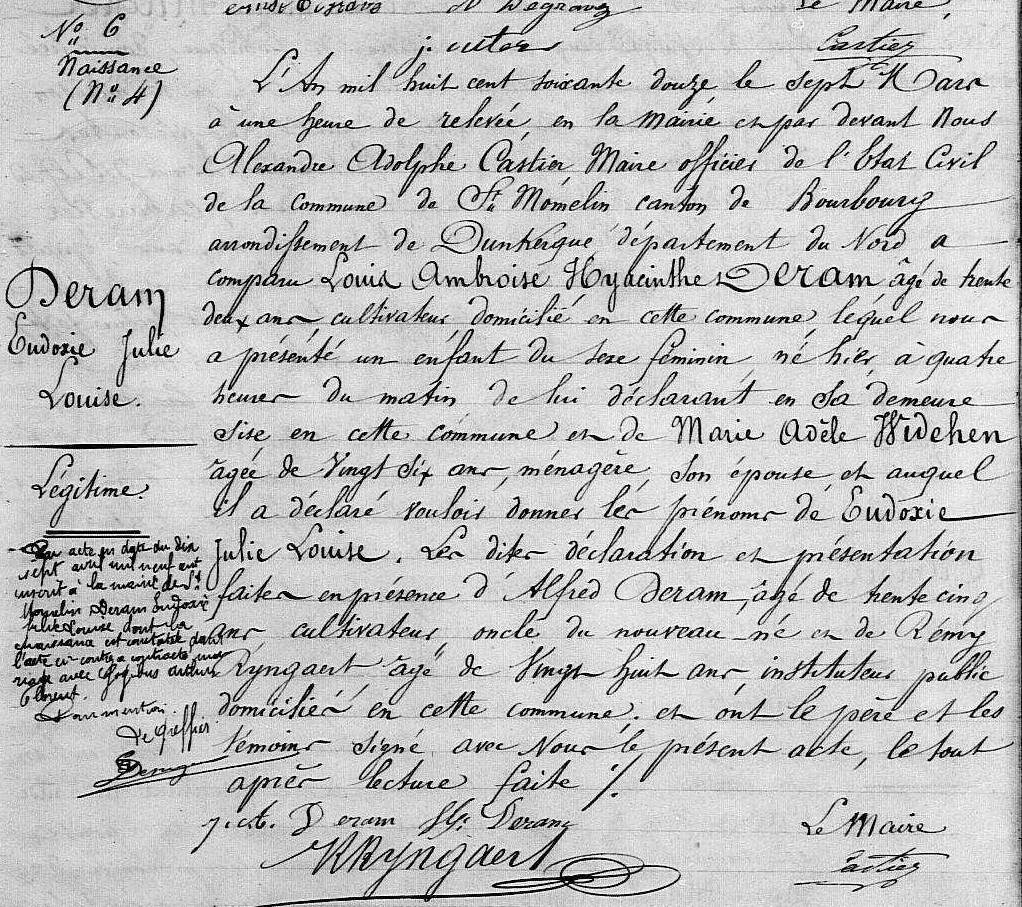 Le Maire
Cartier
No 6
Naissance
(No 4)
L'An mil huit cent soixante douze le sept Mars
à une heure de relevée, en la mairie et par devant Nous
Alexandre Adolphe Cartier Maire officier de l'Etat Civil
de la commune de St Momelin canton de Bourbourg
arrondissement de Dunkerque département du Nord a
comparu Louis Ambroise Hyacinthe DERAM âgé de trente
deux ans cultivateur domicilié en cette commune, lequel nous
a présenté un enfant du sexe féminin, né hier, à quatre
heures du matin de lui déclarant en sa demeure
sise en cette commune et de Marie Adèle Widehen
agée de vingt six ans, ménagère, son épouse, et auquel
il a déclaré vouloir donner les prénoms de Eudoxie
Julie Louise. Les dites déclaration et présentation
faites en présence d'Alfred Deram, âgé de trente cinq
ans cultivateur, oncle du nouveau-né et de Rémy
Ryngaert âgé de vingt huit ans, instituteur public
domiciliés en cette commune, et ont le père et les
témoins signé avec Nous le présent acte, le tout
après lecture faite ./.
Deram
Eudoxie Julie
Louise.
Légitime.
Par acte en date du dix
sept avril mil neuf cent
inscrit à la mairie de St
Momelin Deram Eudoxie
Julie Louise dont la
naissance est constatée dans
l'acte ci-contre a contracté mar
riage avec Arthur
Florent.
Pour mention.
Le Greffier
Deram Deram
RRyngaert
Le Maire
Cartier